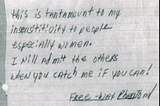 this is tantamount to my
insensitivity to people
especially women.
I will admit the others
when you catch me if you can!
Free-way Phantom